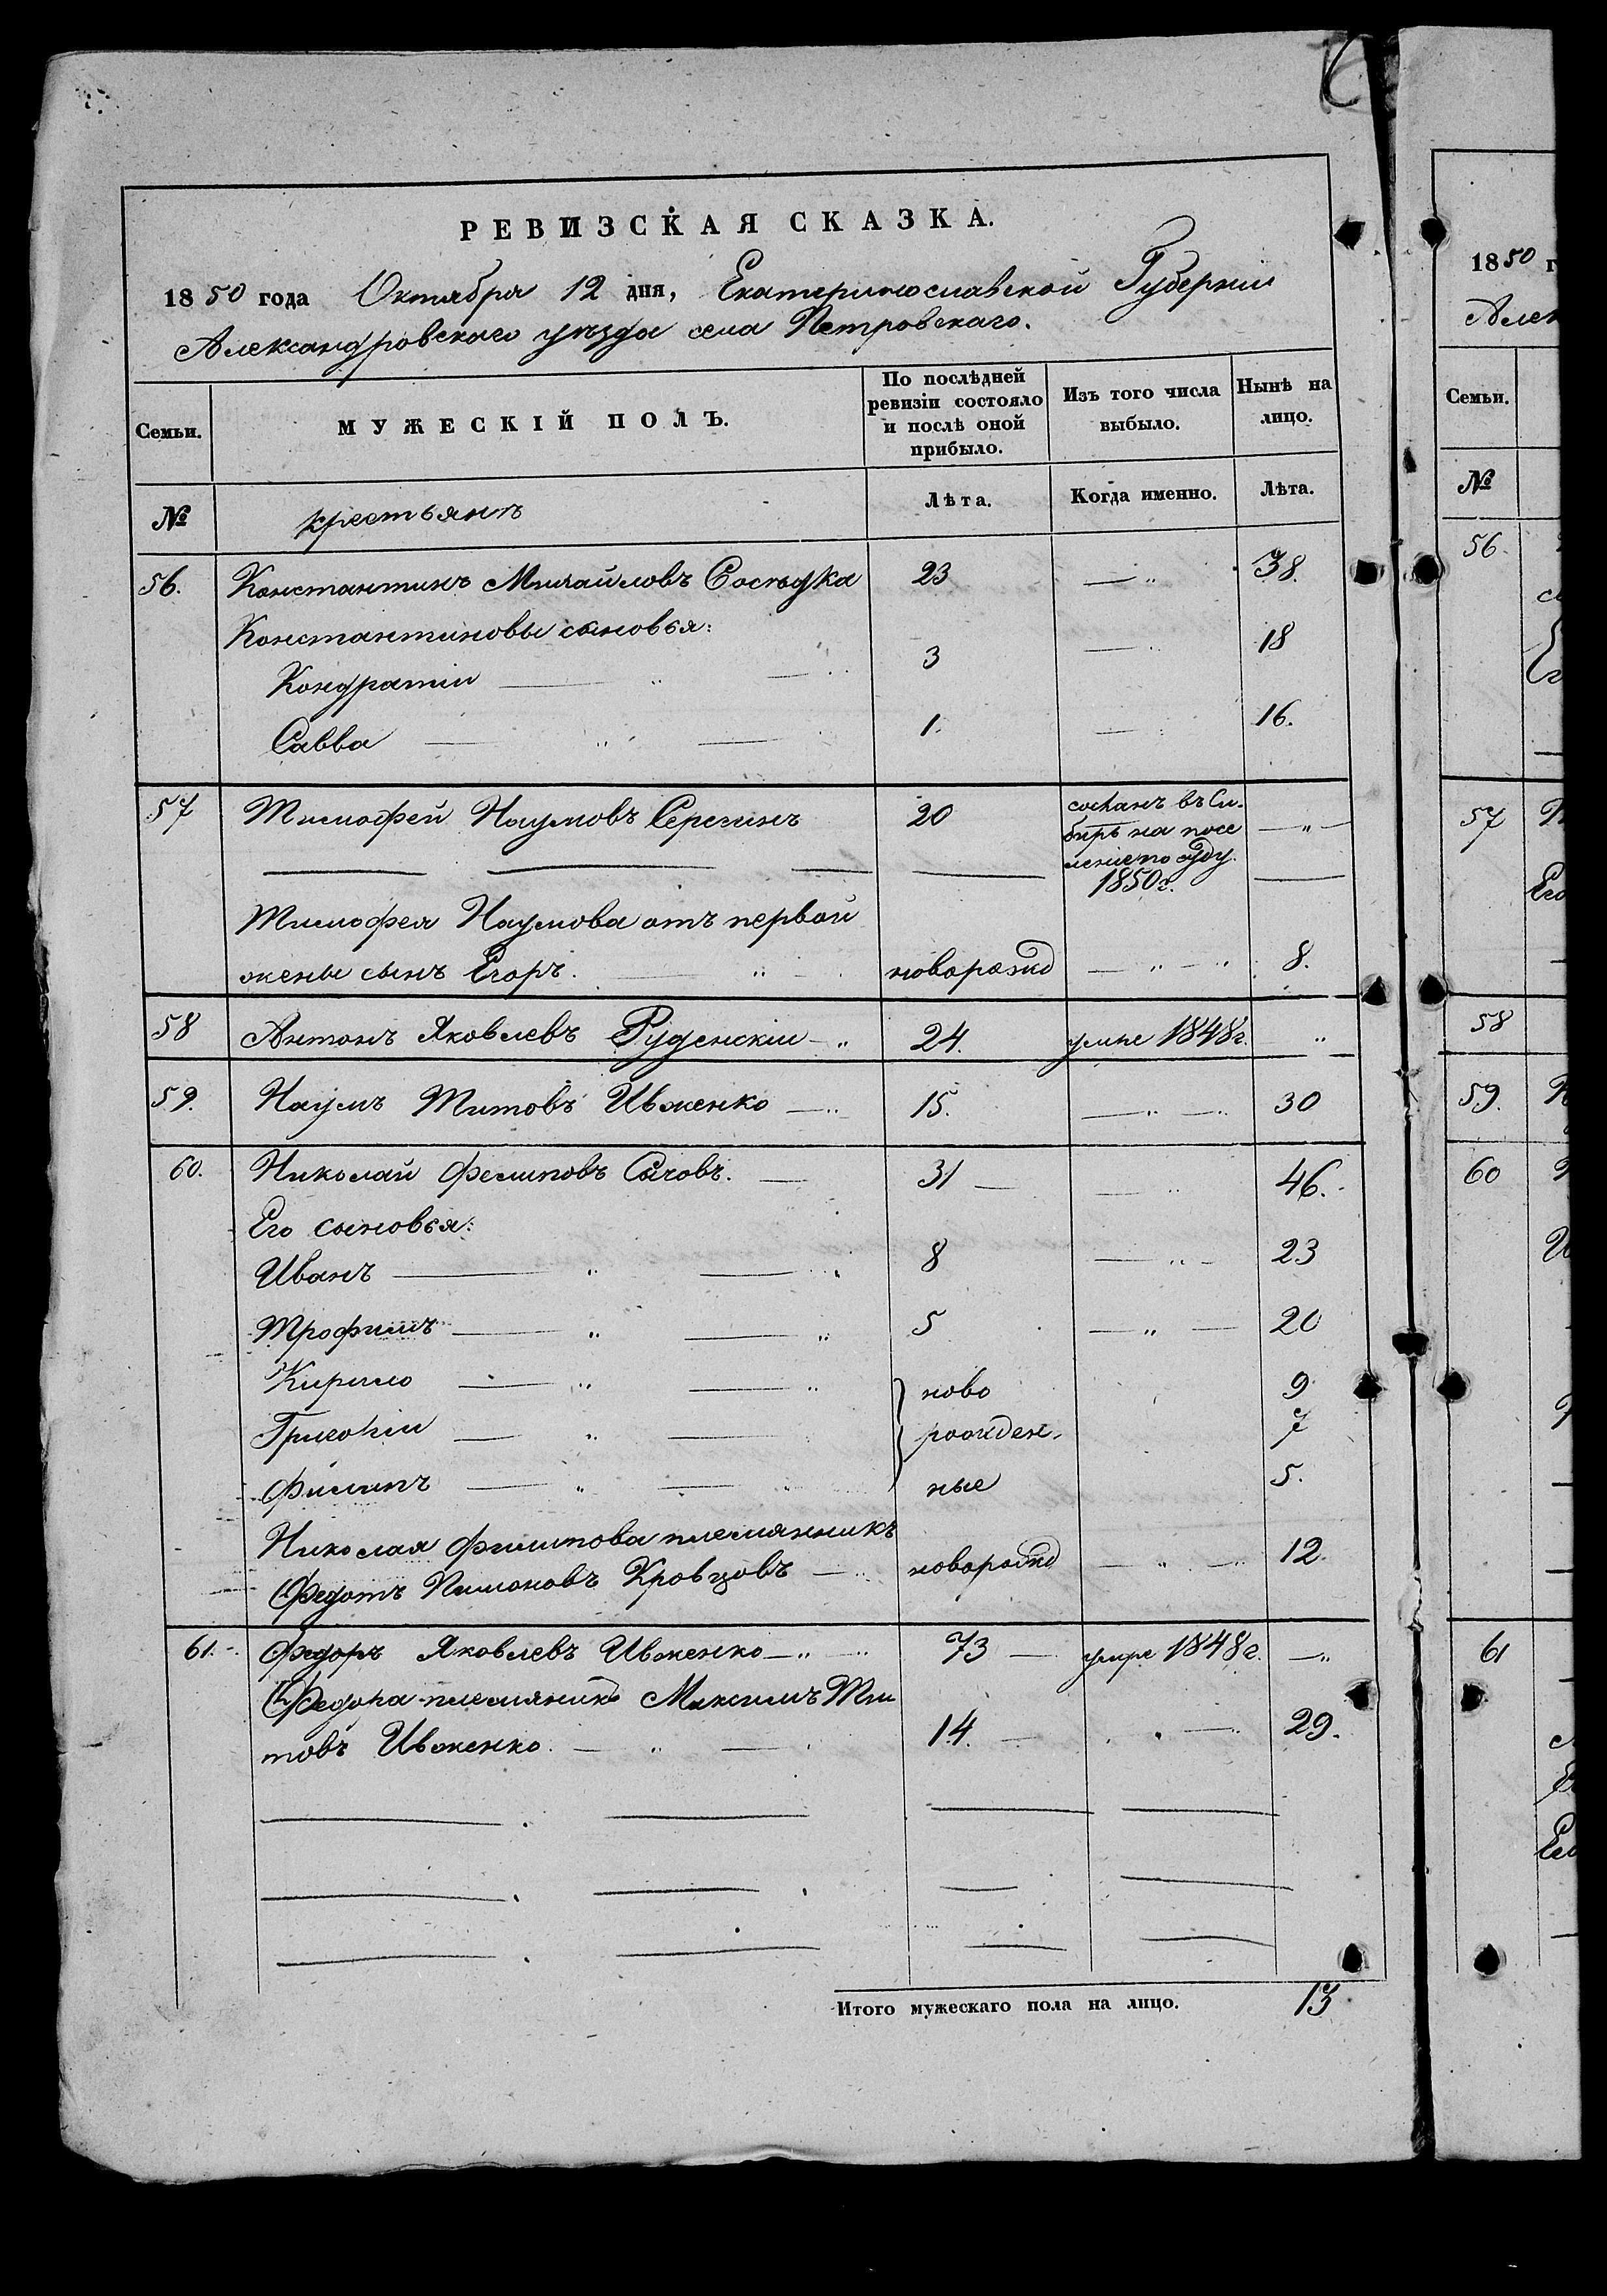 РЕВИЗСКАЯ СКАЗКА.
1850 года Октября 12 дня, Екатеринославской Губерніи
Александровскаго уѣзда села Петровскаго.
Семьи.
МУЖЕСКІЙ ПОЛЪ.
По послѣдней ревизіи состояло и послѣ оной прибыло.
Изъ того числа выбыло.
Нынѣ на лицо.
№ крестьянъ Лѣта. Когда именно. Лѣта.
56. Константинъ Михайловъ Сосѣдка 23 — „ 38.
Константиновы сыновья:
Кондратій — „ — 3 — „ 18
Савва — „ — 1. — „ 16.
57 Тимофей Наумовъ Серегинъ 20 сосланъ въ Си- — „ —
биръ на посе
леніе по суду
1850г.
Тимофея Наумова отъ первой
жены сынъ Егоръ. — „ — новорожд — „ — „ 8.
58 Антонъ Яковлевъ Руденскій — „ 24. умре 1848г. „
59. Наумъ Титовъ Ивженко — „ 15. — „ — 30
60. Николай Фелиповъ Сычовъ. — 31 — — „ 46.
Его сыновья:
Иванъ — „ — „ 8 — „ — 23
Трофимъ — „ — „ 5 — „ — 20
Кирило — „ — „ ново 9
Григорій — „ — рожден- 7
Филипъ — „ — „ ные 5.
Николая Филипова племянникъ
Федотъ Пимоновъ Кровцовъ — новорожд — „ — 12.
61. Федоръ Яковлевъ Ивженко — „ — 73 — умре 1848г. — „
Федора племяникъ Максимъ Ти
товъ Ивженко. — „ — 14. — „ — 29.
Итого мужескаго пола на лицо. 13
1850 г
Алек
Семьи.
№
56.
57
Его
58
59.
60
61